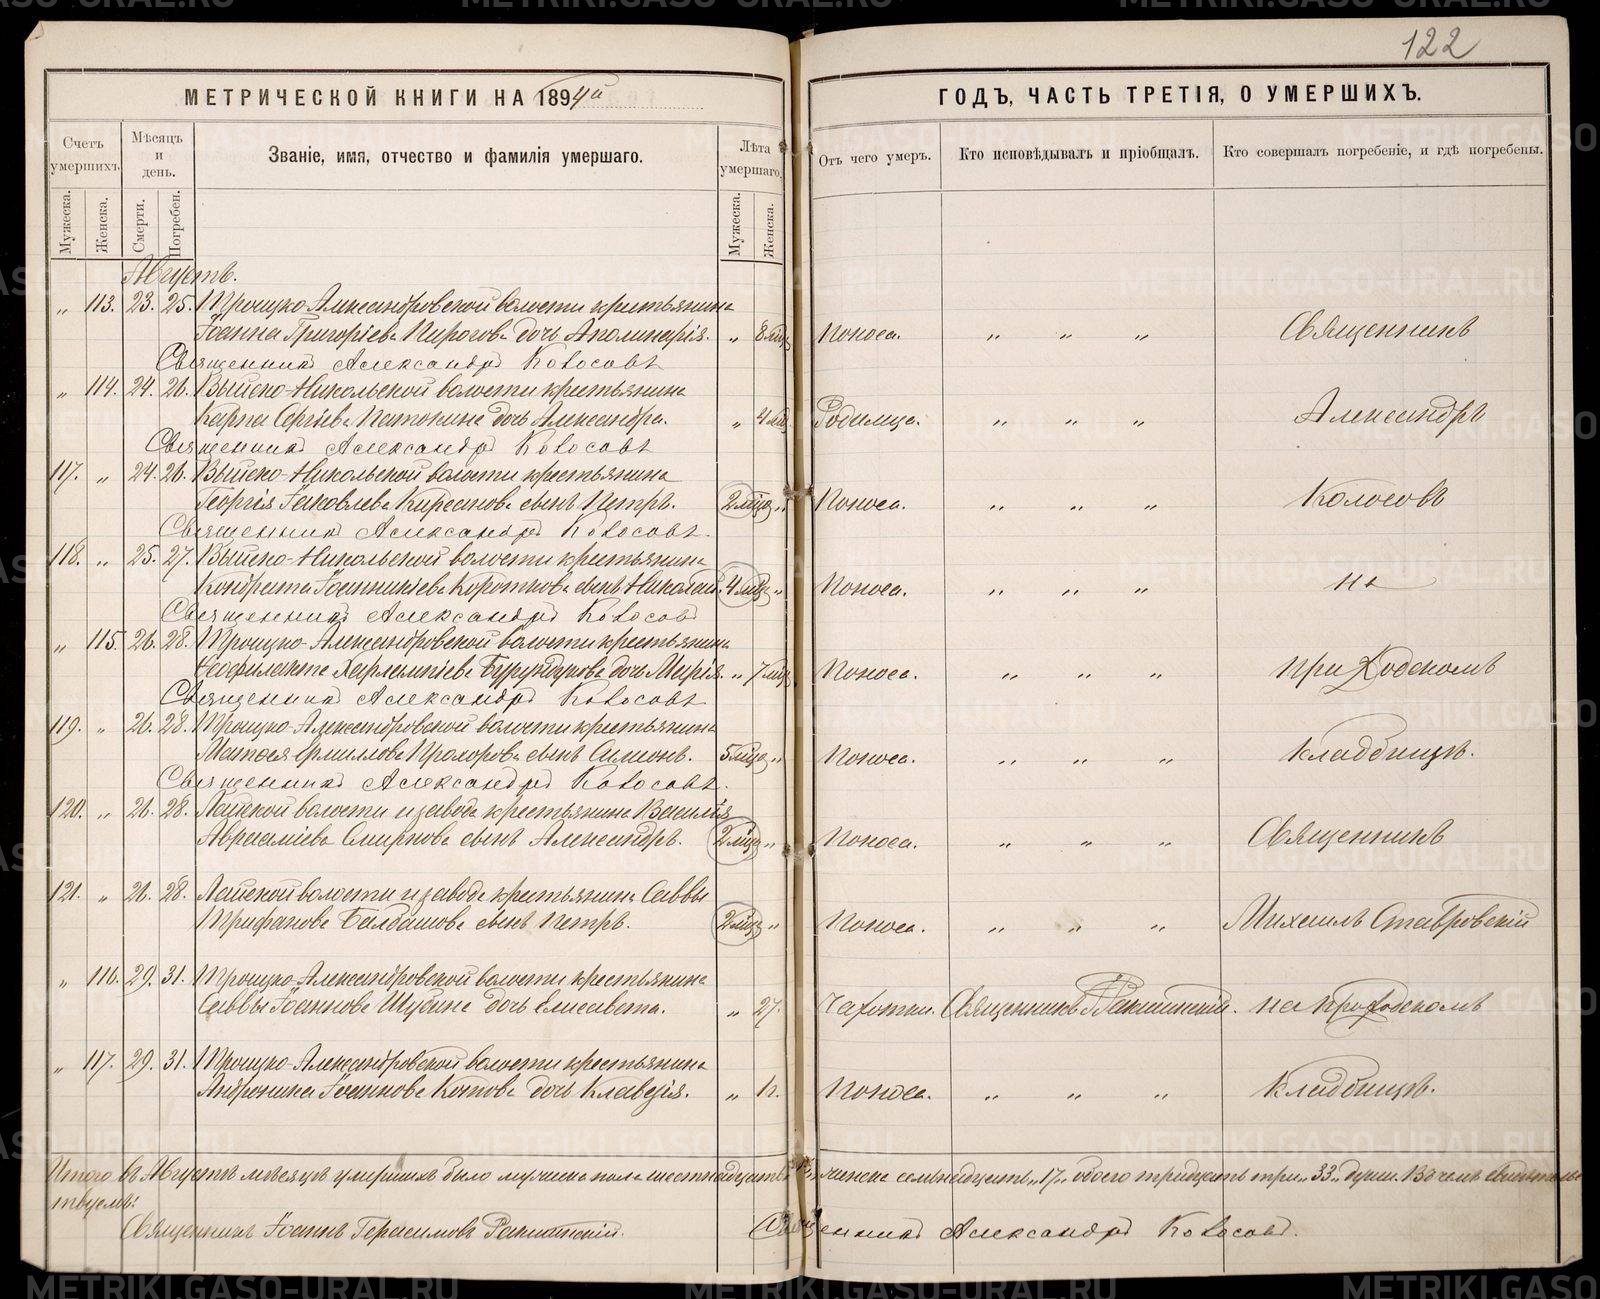 122
МЕТРИЧЕСКОЙ КНИГИ НА 1894й
ГОДЪ, ЧАСТЬ ТРЕТІЯ, О УМЕРШИХЪ.
Счетъ умершихъ.
Мѣсяцъ и день.
Званіе, имя, отчество и фамилія умершаго.
Лѣта умершаго.
Отъ чего умеръ.
Кто исповѣдывалъ и пріобщалъ.
Кто совершалъ погребеніе, и гдѣ погребены.
Мужеска.
Женска.
Смерти.
Погребен.
Мужеска.
Женска.
Августъ.
„ 113. 23. 25. Троицко-Александровской волости крестьянина
Іоанна Григоріева Пирогова дочь Аполинарія. „ 8 мѣс. Поноса. „ „ „ Священникъ
Священникъ Александръ Колосовъ
„ 114. 24. 26. Выйско-Никольской волости крестьянина
Карпа Сергѣева Патокина дочь Александра. „ 4 мѣс. Родимца. „ „ „ Александръ
Священникъ Александръ Колосовъ
117. „ 24. 26. Выйско-Никольской волости крестьянина
Георгія Іаковлева Кирсанова сынъ Петръ. 2 мѣс. „ Поноса. „ „ „ Колосовъ
Священникъ Александръ Колосовъ.
118. „ 25. 27. Выйско-Никольской волости крестьянина
Кондрата Іоанникіева Короткова сынъ Николай. 4 мѣс. „ Поноса. „ „ „ на
Священникъ Александръ Колосовъ
„ 115. 26. 28. Троицко-Александровской волости крестьянина
Харлампіева Бурундукова дочь Марія. „ 7 мѣс. Поноса. „ „ „ приходскомъ
Священникъ Александръ Колосовъ
119. „ 26. 28. Троицко-Александровской волости крестьянина
Ермилова Прохорова сынъ Симеонъ. 5 мѣс. „ Поноса. „ „ „ кладбищѣ.
Священникъ Александръ Колосовъ.
120. „ 26. 28. Лайской волости и завода крестьянина Василія
Авраамiева Смирнова сынъ Александръ. 2 мѣс. „ Поноса. „ „ „ Священникъ
121. „ 26. 28. Лайской волости и завода крестьянина Саввы
Трифанова Балдашова сынъ Петръ. 2 мѣс. „ Поноса. „ „ „ Михаилъ Ставровскій
„ 116. 29. 31. Троицко-Александровской волости крестьянина
Саввы Іоаннова Шубина дочь Елисавета. „ 27. Чахотки. Священникъ І. на приходскомъ
„ 117. 29. 31. Троицко-Александровской волости крестьянина
Андроника Іоаннова Котова дочь Клавдія. „ Поноса. „ „ „ кладбищѣ.
Итого въ Августѣ мѣсяцѣ умершихъ было мужеска пола шестнадцать женска семнадцать „17„ обоего тридцать три „33„ души. Въ чемъ свидѣтельс
твуемъ:
Священникъ Іоаннъ Герасимовъ
Священникъ Александръ Колосовъ.